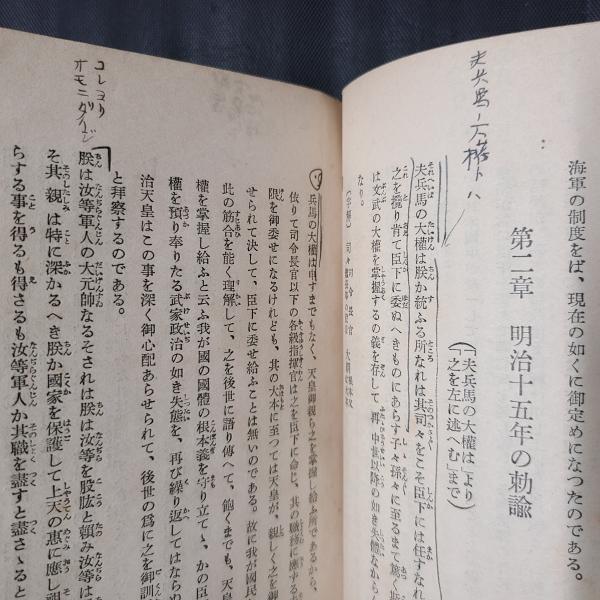 海軍の制度をば、現在の如くに御定めになつたのである。
第二章　明治十五年の勅諭
(「夫兵馬の大權は」より
「之を左に述へむ」まで)
夫兵馬ノ大權トハ
夫兵馬の大權は朕か統ふる所なれは其司々をこそ臣下には任すなれ
之を攬り肯て臣下に委ぬへきものにあらす子々孫々に至るまて篤く斯
は文武の大權を掌握するの義を存して再中世以降の如き失體なから
なり。
兵馬の大權は申すまでもなく、天皇御親ら之を掌握し給ふ所であるから、
依りて司令長官以下の各級指揮官は之を臣下に命じ、其の職務に應ずる
限を御委せになるけれども、其の大本に至つては天皇が、親しく之を
せられて決して、臣下に委せ給ふことは無いのである。故に我が國民
此の筋合を能く理解して、之を後世に語り傳へて、飽くまでも、天皇
權を掌握し給ふと云ふ我が國の國體の根本義を守り立て、かの臣
權を預り奉りたる武家政治の如き失態を、再び繰り返してはならぬ
治天皇はこの事を深く御心配あらせられて、後世の爲に之を御訓
と拜察するのである。
コレヨリ
朕は汝等軍人の大元帥なるそされは朕は汝等を股肱と頼み汝等は
そ其親は特に深かるへき朕か國家を保護して上天の惠に應し祖
らする事を得るも得さるも汝等軍人か其職を盡すと盡さゝると